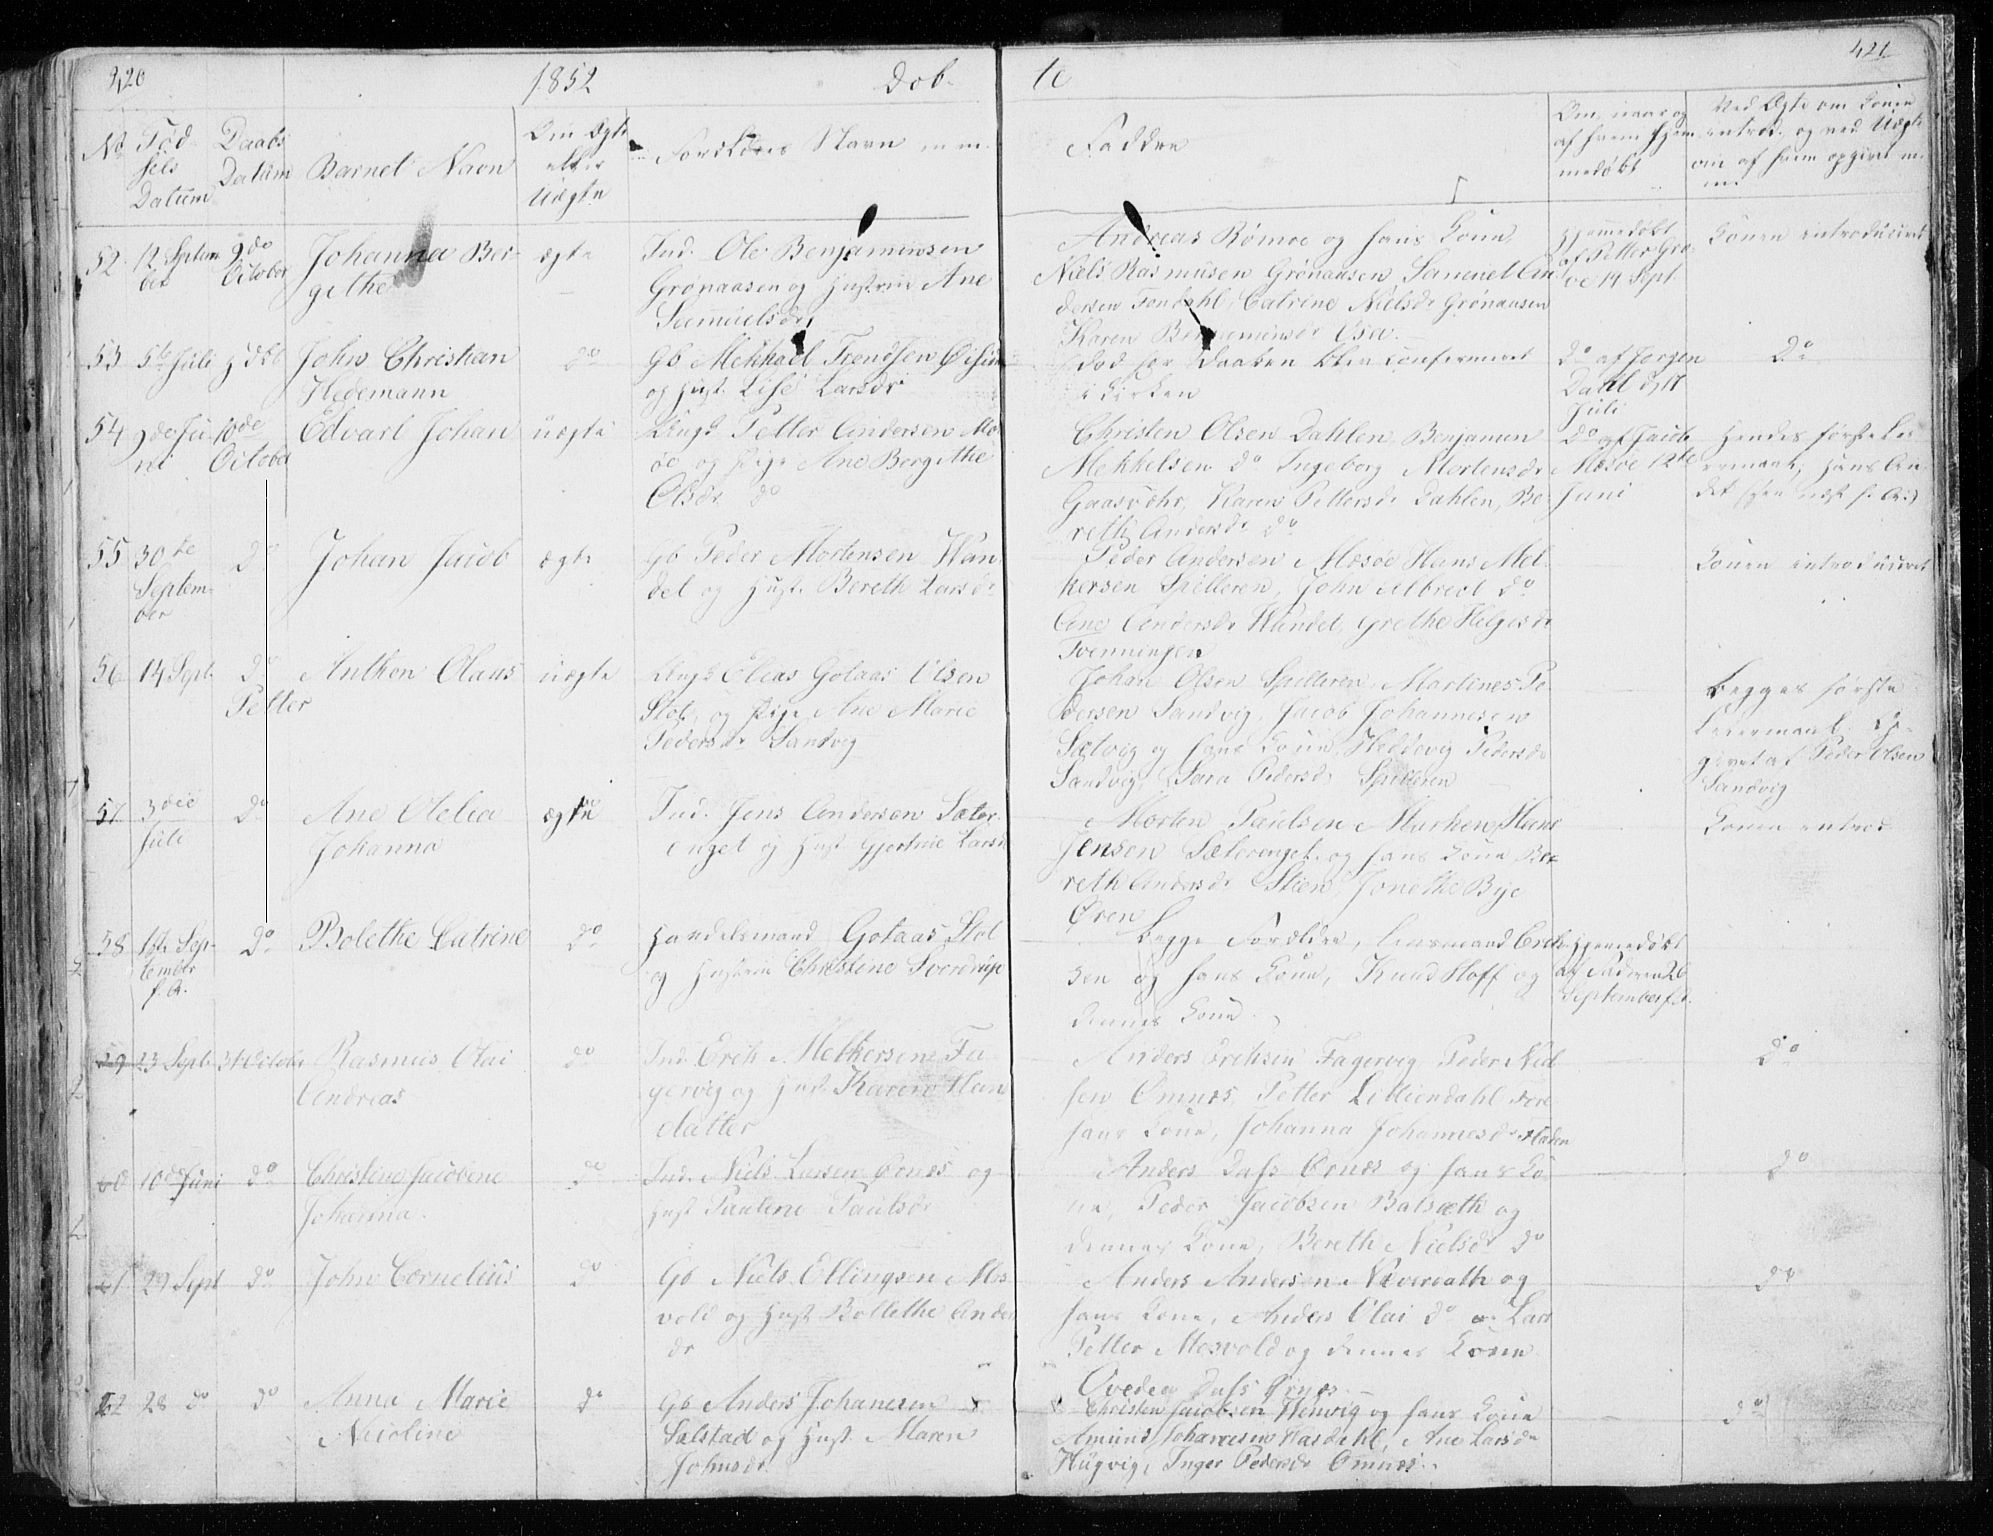 420
1852
Døb-
te
421
No Fød
sels
Datum
Daabs
Datum
Barnet Navn
Om Ægte
eller
Uægte
Forældres Navn m m.
Faddre
Om, naar og
af hvem hjem
medøbt
Ved Ægte om Konen
introd. og ved Uægte
om af hvem opgivet m.
m.
52 12 Septem
ber
9de
October
Johanna Ber-
githe
ægte
Ind. Ole Benjaminsen
Grønaasen og Hustrue Ane
Samuelsdr
Andreas Rømoe og hans Kone,
Niels Rasmusen Grønaasen Samuel An
dersen Fondahl Catrine Nielsdr Grønaasen
Karen Benjaminsdr
hjemedøbt
af Petter Gro-
voe 14 Sept.
Konen introduceret
53 5te Juli
John Christian
Hedemann
do
Gb Mekkael
og Hust. Lise Larsdr
død før Daaben blev confirmeret
i Kirken
do af Jørgen
Dahl d. 17
Juli
do
54 2den Ju
ni
10de
October
Edvart Johan
uægte
Ungk Petter Andersen Mo
oe og Pige Ane Bergithe
Olsdr do
Christen Olsen Dahlen, Benjamin
Mekkelsen do Ingeborg Mortensdr
Gaasvæhr, Karen Pettersdr Dahlen, Be-
reth Andersdr do
do af Jacob
Mæsøe 12te
Juni
Hendes første Lei
ermaal, hans An
det
55 30te
Septem-
ber
do
Johan Jacob
ægte
Gb Peder Mortensen Wan
del og Hust. Bereth Larsdr
Peder Andersen Mæsøe Hans Mel-
kersen Spilleren, John Albregt do
Ane Andersdr Wandel, Grethe Helgesdr
Tvenningen
Konen introduceret
56 14 Sept.
do
Anthon Olaus
Petter
uægte
Ungk Elias Gotaas Olsen
Stol, og Pige Ane Marie
Pedersdr Sandvig
Johan Olsen Spilleren, Martines Pe
dersen Sandvig, Jacob Johannesen
Sætvig og hans Kone, Heddevig Pedersdr
Sandvig, Sara Pedersdr Spilleren
begges første
Leiermaal. Op-
givet af Peder Olsen
Sandvig
57 3die
Juli
do
Ane Otelia
Johanna
ægte
Ind. Jens Andersen Sæter-
enget og Hust Gjertine Larsdr
Morten Paulsen Marken, Hans
Jensen Sæterenget og hans Kone Be-
reth Andersdr Stien, Jonetha Bye
Øren
Konen introd
58 1ste Sep-
tembr
f. A.
do
Bolethe Catrine
do
Handelsmand Gotaas Stol
og Hustrue Christine Sverdrup
begge Forældre, Lensmand Erik-
sen og hans Kone, Knud Hoff og
dennes Kone
Hjemedøbt
af Faderen 26
September f. A.
59 23 Sept. 31 October
Rasmus Olai
Andreas
do
Ind. Erik Melkersen Fa
gervig og Hust Karen Han
datter
Anders Eriksen Fagervig Peder Niel
sen Ømnes, Petter Lilliendahl Fore
hans Kone, Johanna Johannesdr Haden
do
60 10de Juni
do
Christine Jacobine
Johanna
do
Ind. Niels Larsen Ørnes og
Hust Pauline Paulsdr
Anders Dass Ørnes og hans Ko
ne, Peder Jacobsen Balsæth og
dennes Kone, Bereth Nielsdr do
do
61 29 Sept
do
John Cornelius
do
Gb Niels Ellingsen Mos
vold og Hust Bollethe Anders
dr
Anders Andersen Neveraath og
hans Kone, Anders Olai do Lars
Petter Mosvold og dennes Kone
Ovedea Dass Ørnes
do
62 28 do
do
Anna Marie
Nicoline
do
Gb Anders Johanesen
Salstad og Hust Maren
Johnsdr
Christen Jacobsen Hemvig og hans Kone
Amund Johannesen Hasdahl, Ane Larsdr
Hugvig, Inger Pedersdr Ømnes.
do